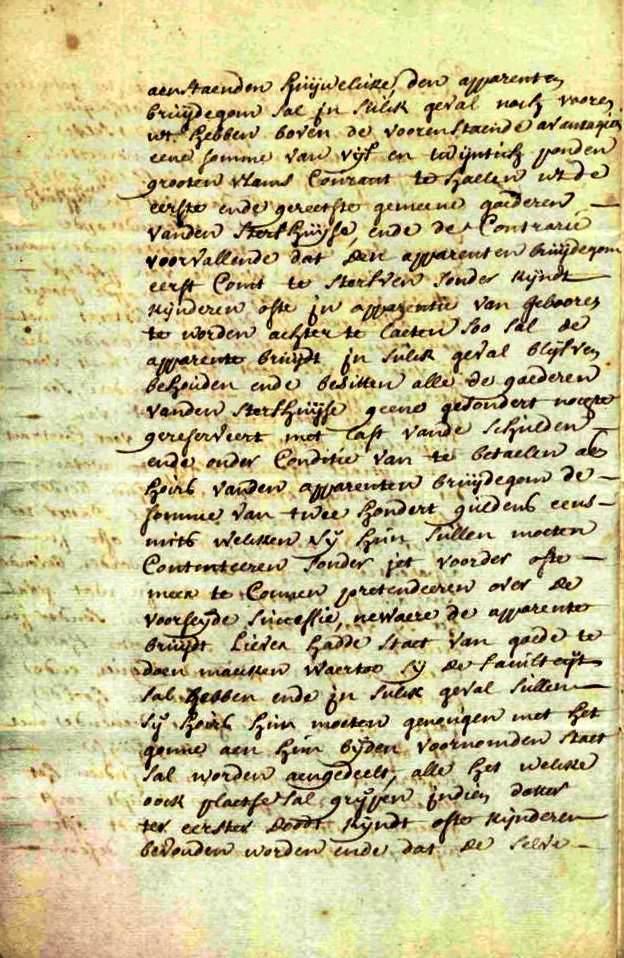 aenstaenden huijwelicke, den apparenten
bruijdegom sal jn sulck geval noch vooren
ut hebben boven de voorenstaende avantagien
eene somme van vijf en twijntich ponden
grooten vlams Courant te haelen ut de
eerste ende gereetste gemeene goederen
vanden sterfhuijse, ende de Contrarie
voorvallende dat den apparenten bruijdegom
eerst Comt te sterfven sonder kijndt
kijnderen ofte jn apparentie van gebooren
te worden achter te laeten soo sal de
apparente bruijdt jn sulck geval blijfven
behouden ende besitten alle de goederen
vanden sterfhuijse geene gesondert nochte
gereserveert met last vande schulden
ende onder Conditie van te betaelen ae
hoirs vanden apparenten bruijdegom de
somme van twee hondert guldens eens
mits welcken sij hun sullen moeten
Contenteeren sonder jet voorder ofte
meer te Connen pretendeeren over de
voorseyde successie, newaere de apparente
bruijdt liever hadde staet van goede te
doen maecken waertoe sij de faculteijt
sal hebben ende jn sulck geval sullen
sij hoirs hun moeten genougen met het
gonne aen hun bijden voornomden staet
sal worden aengedeelt, alle het welcke
oock plaetse sal grijpen jndien datter
ter eerster doodt kijndt ofte kijnderen
bevonden worden ende dat de selve